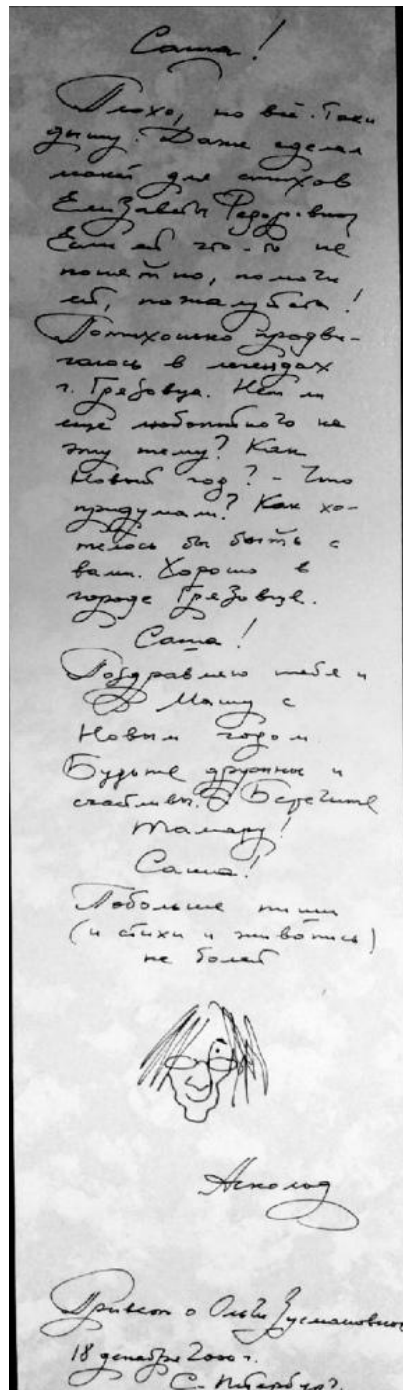 Саша!
Плохо, но всё-таки
дышу. Даже сделал
макет для стихов
Елизаветы Федоровны
Если ей что-то не
понятно, помоги
ей, пожалуйста!
Потихоньку продви-
гаюсь в легендах
г. Грязовца. Нет ли
ещё любопытного на
эту тему? Как
Новый год? - Что
придумали? Как хо-
телось бы быть с
вами. Хорошо в
городе Грязовце.
Саша!
Поздравляю тебя и
Машу с
Новым годом
Будьте дружны и
счастливы. Берегите
Тамару!
Саша!
Побольше пиши
(и стихи и живопись)
не болей
Аскольд
Привет Ольге
18 декабря 2000 г.
С. Петербург.